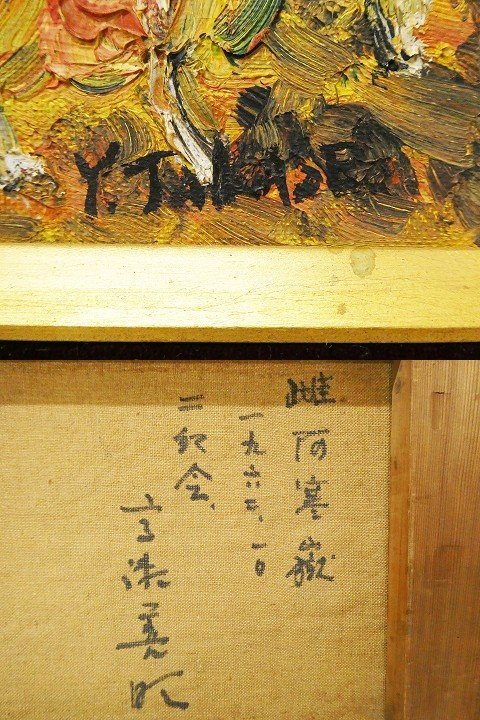 Y. TAKASE
雌阿寒嶽
一九六二、一〇
二紀会、
高瀬善明